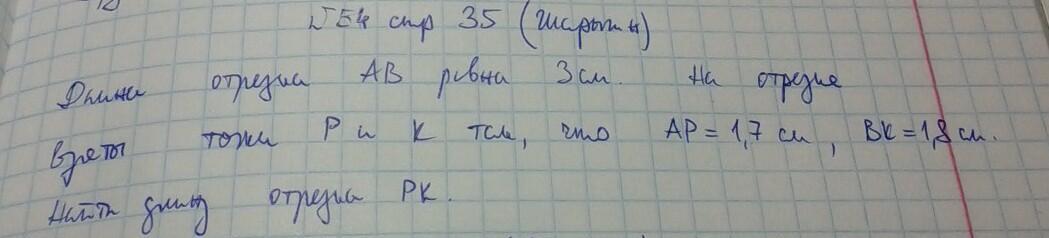 № Е4 стр 35 (Шарыгин)
Длина отрезка АВ равна 3 см. На отрезке
взяты точки Р и К так, что АР = 1,7 см, ВК = 1,8 см.
Найти длину отрезка РК.